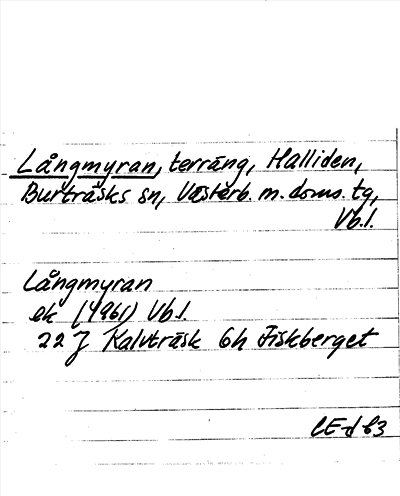 Långmyran, terräng, Halliden,
Burträsks sn, Västerb. m. doms. tg,
Vb.l.
Långmyran
ek (1961) Vb.l.
22 J Kalvträsk 6h Fiskberget